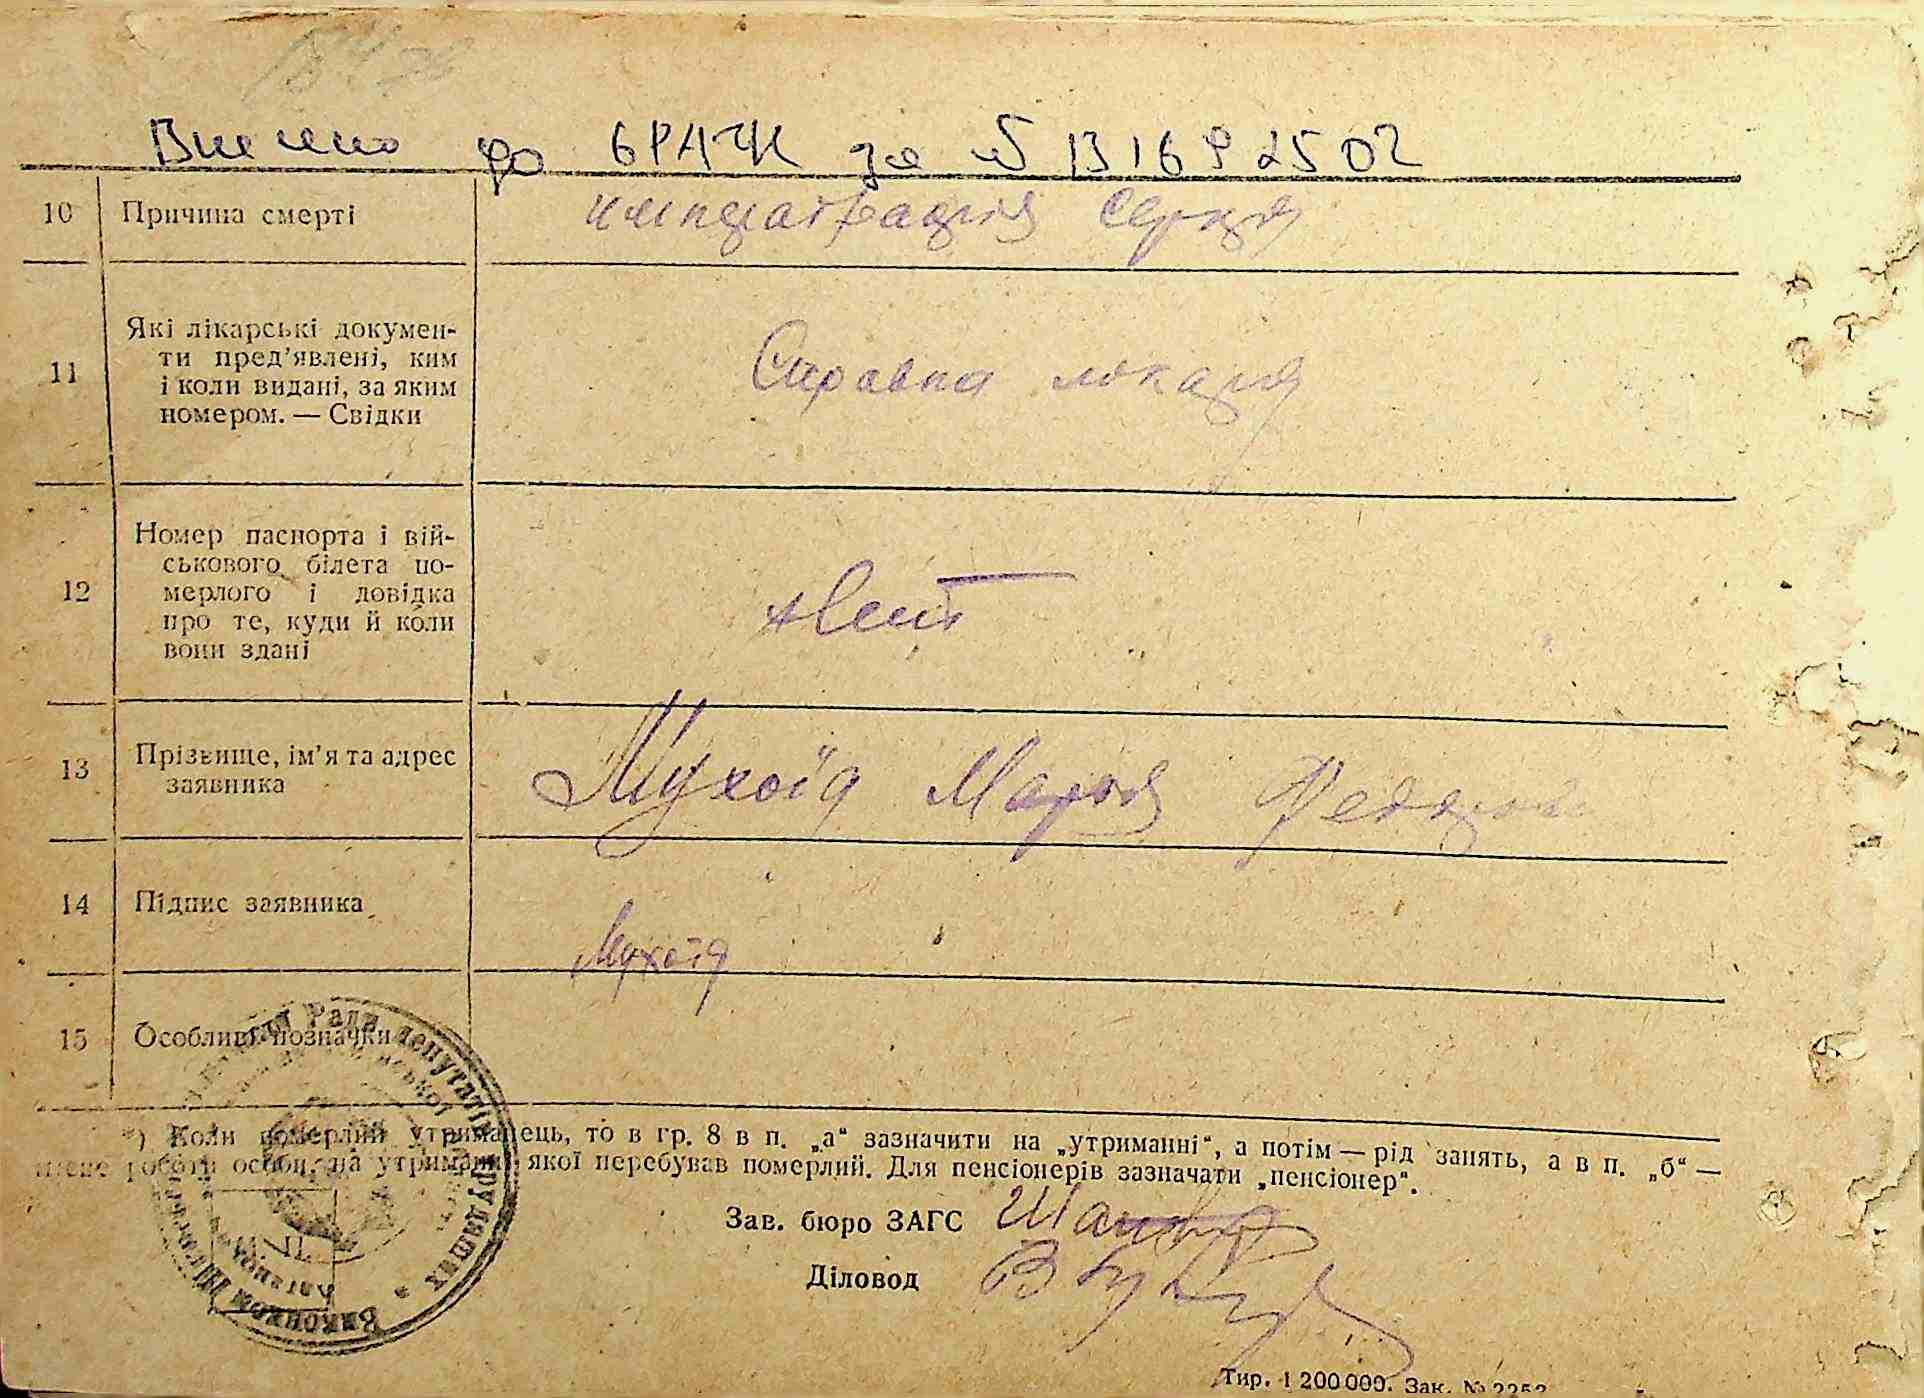 Внесено до ЄРАЧК за № 13169 2502
10 Причина смерті
серця
Які лікарські докумен-
ти пред'явлені, ким
11 і коли видані, за яким
номером. — Свідки
Справка лікаря
Номер паспорта і вій-
ськового білета по-
12 мерлого і довідка
про те, куди й коли
вони здані
Нет
13 Прізвище, ім'я та адрес
заявника
Мухоїд Марія
14 Підпис заявника
Мухоїд
15 Особливі позначки
*) Коли померлий утриманець, то в гр. 8 в п. „а“ зазначити на „утриманні“, а потім — рід занять, а в п. „б“ —
місце роботи особи, на утриманні якої перебував померлий. Для пенсіонерів зазначати „пенсіонер“.
Зав. бюро ЗАГС
Діловод
Ради депутатів трудящих
Виконком
Тир. 1 200 000. Зак. № 2252